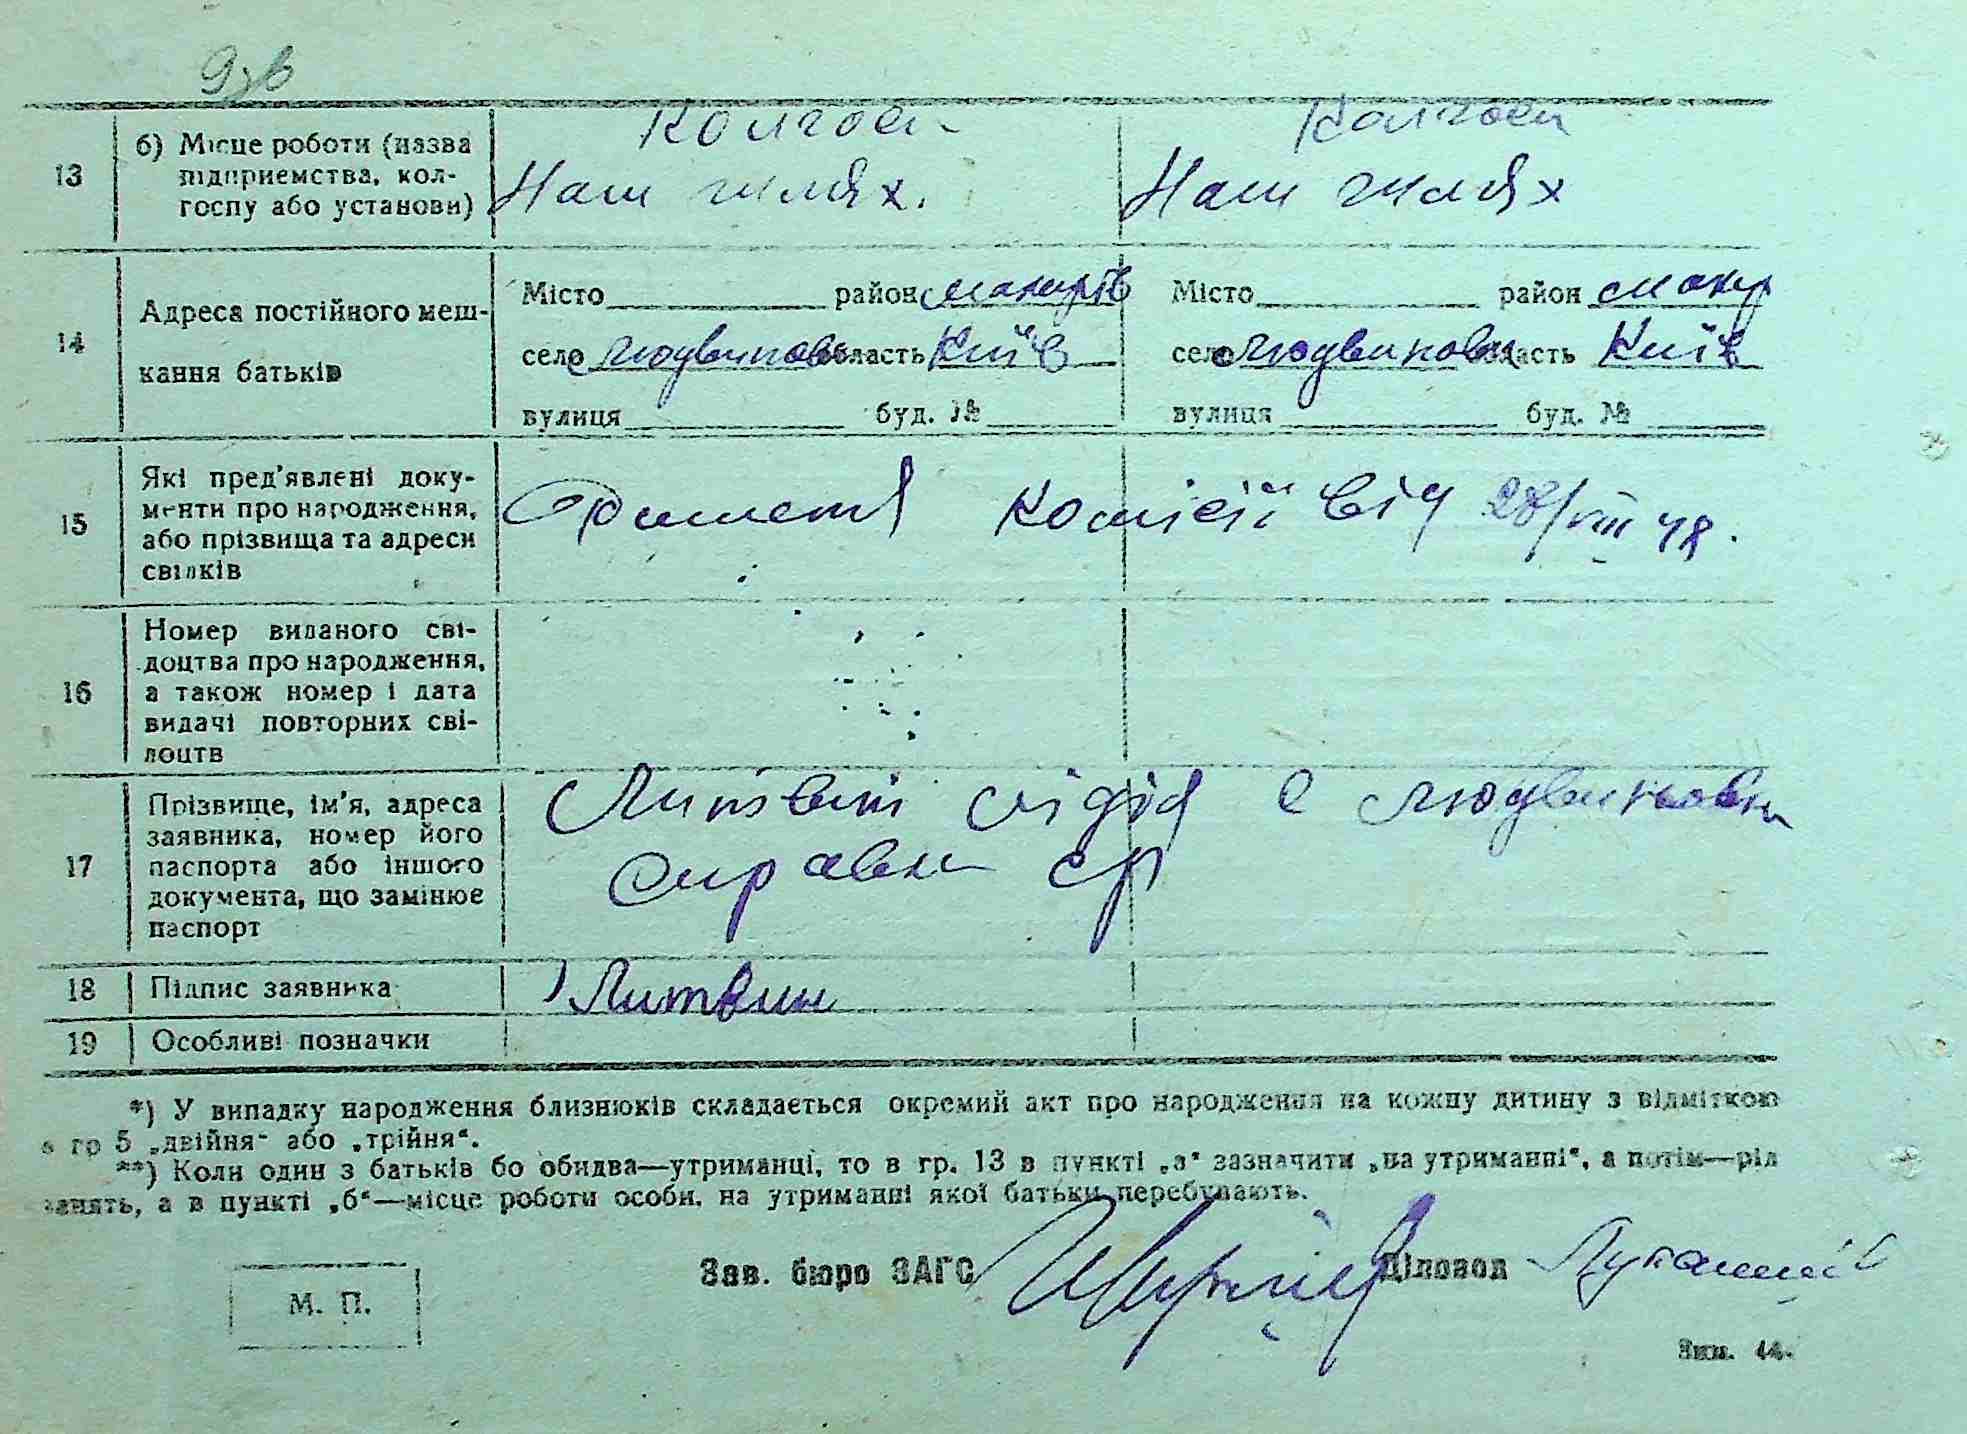 13 б) Місце роботи (назва Колгосп Колгосп
підприємства, кол- Наш шлях. Наш шлях
госпу або установи)
14 Адреса постійного меш- Місто район Макарів Місто район Макар
кання батьків село Людвинівка область Київ село Людвиновка область Київ
вулиця буд. № вулиця буд. №
15 Які пред'явлені доку-
менти про народження, комісії від 28/VIII 48.
або прізвища та адреси
свідків
16 Номер виданого сві-
доцтва про народження,
а також номер і дата
видачі повторних сві-
доцтв
17 Прізвище, ім'я, адреса Литвин с Людвиновки
заявника, номер його справки
паспорта або іншого
документа, що замінює
паспорт
18 Підпис заявника Литвин
19 Особливі позначки
*) У випадку народження близнюків складається окремий акт про народження на кожну дитину з відміткою
в гр 5 „двійня" або „трійня".
**) Коли один з батьків бо обидва—утриманці, то в гр. 13 в пункті „а" зазначити „на утриманні", а потім—рід
занять, а в пункті „б"—місце роботи особи, на утриманні якої батьки перебувають.
Зав. бюро ЗАГС Діловод
М. П.
Зим. 44.